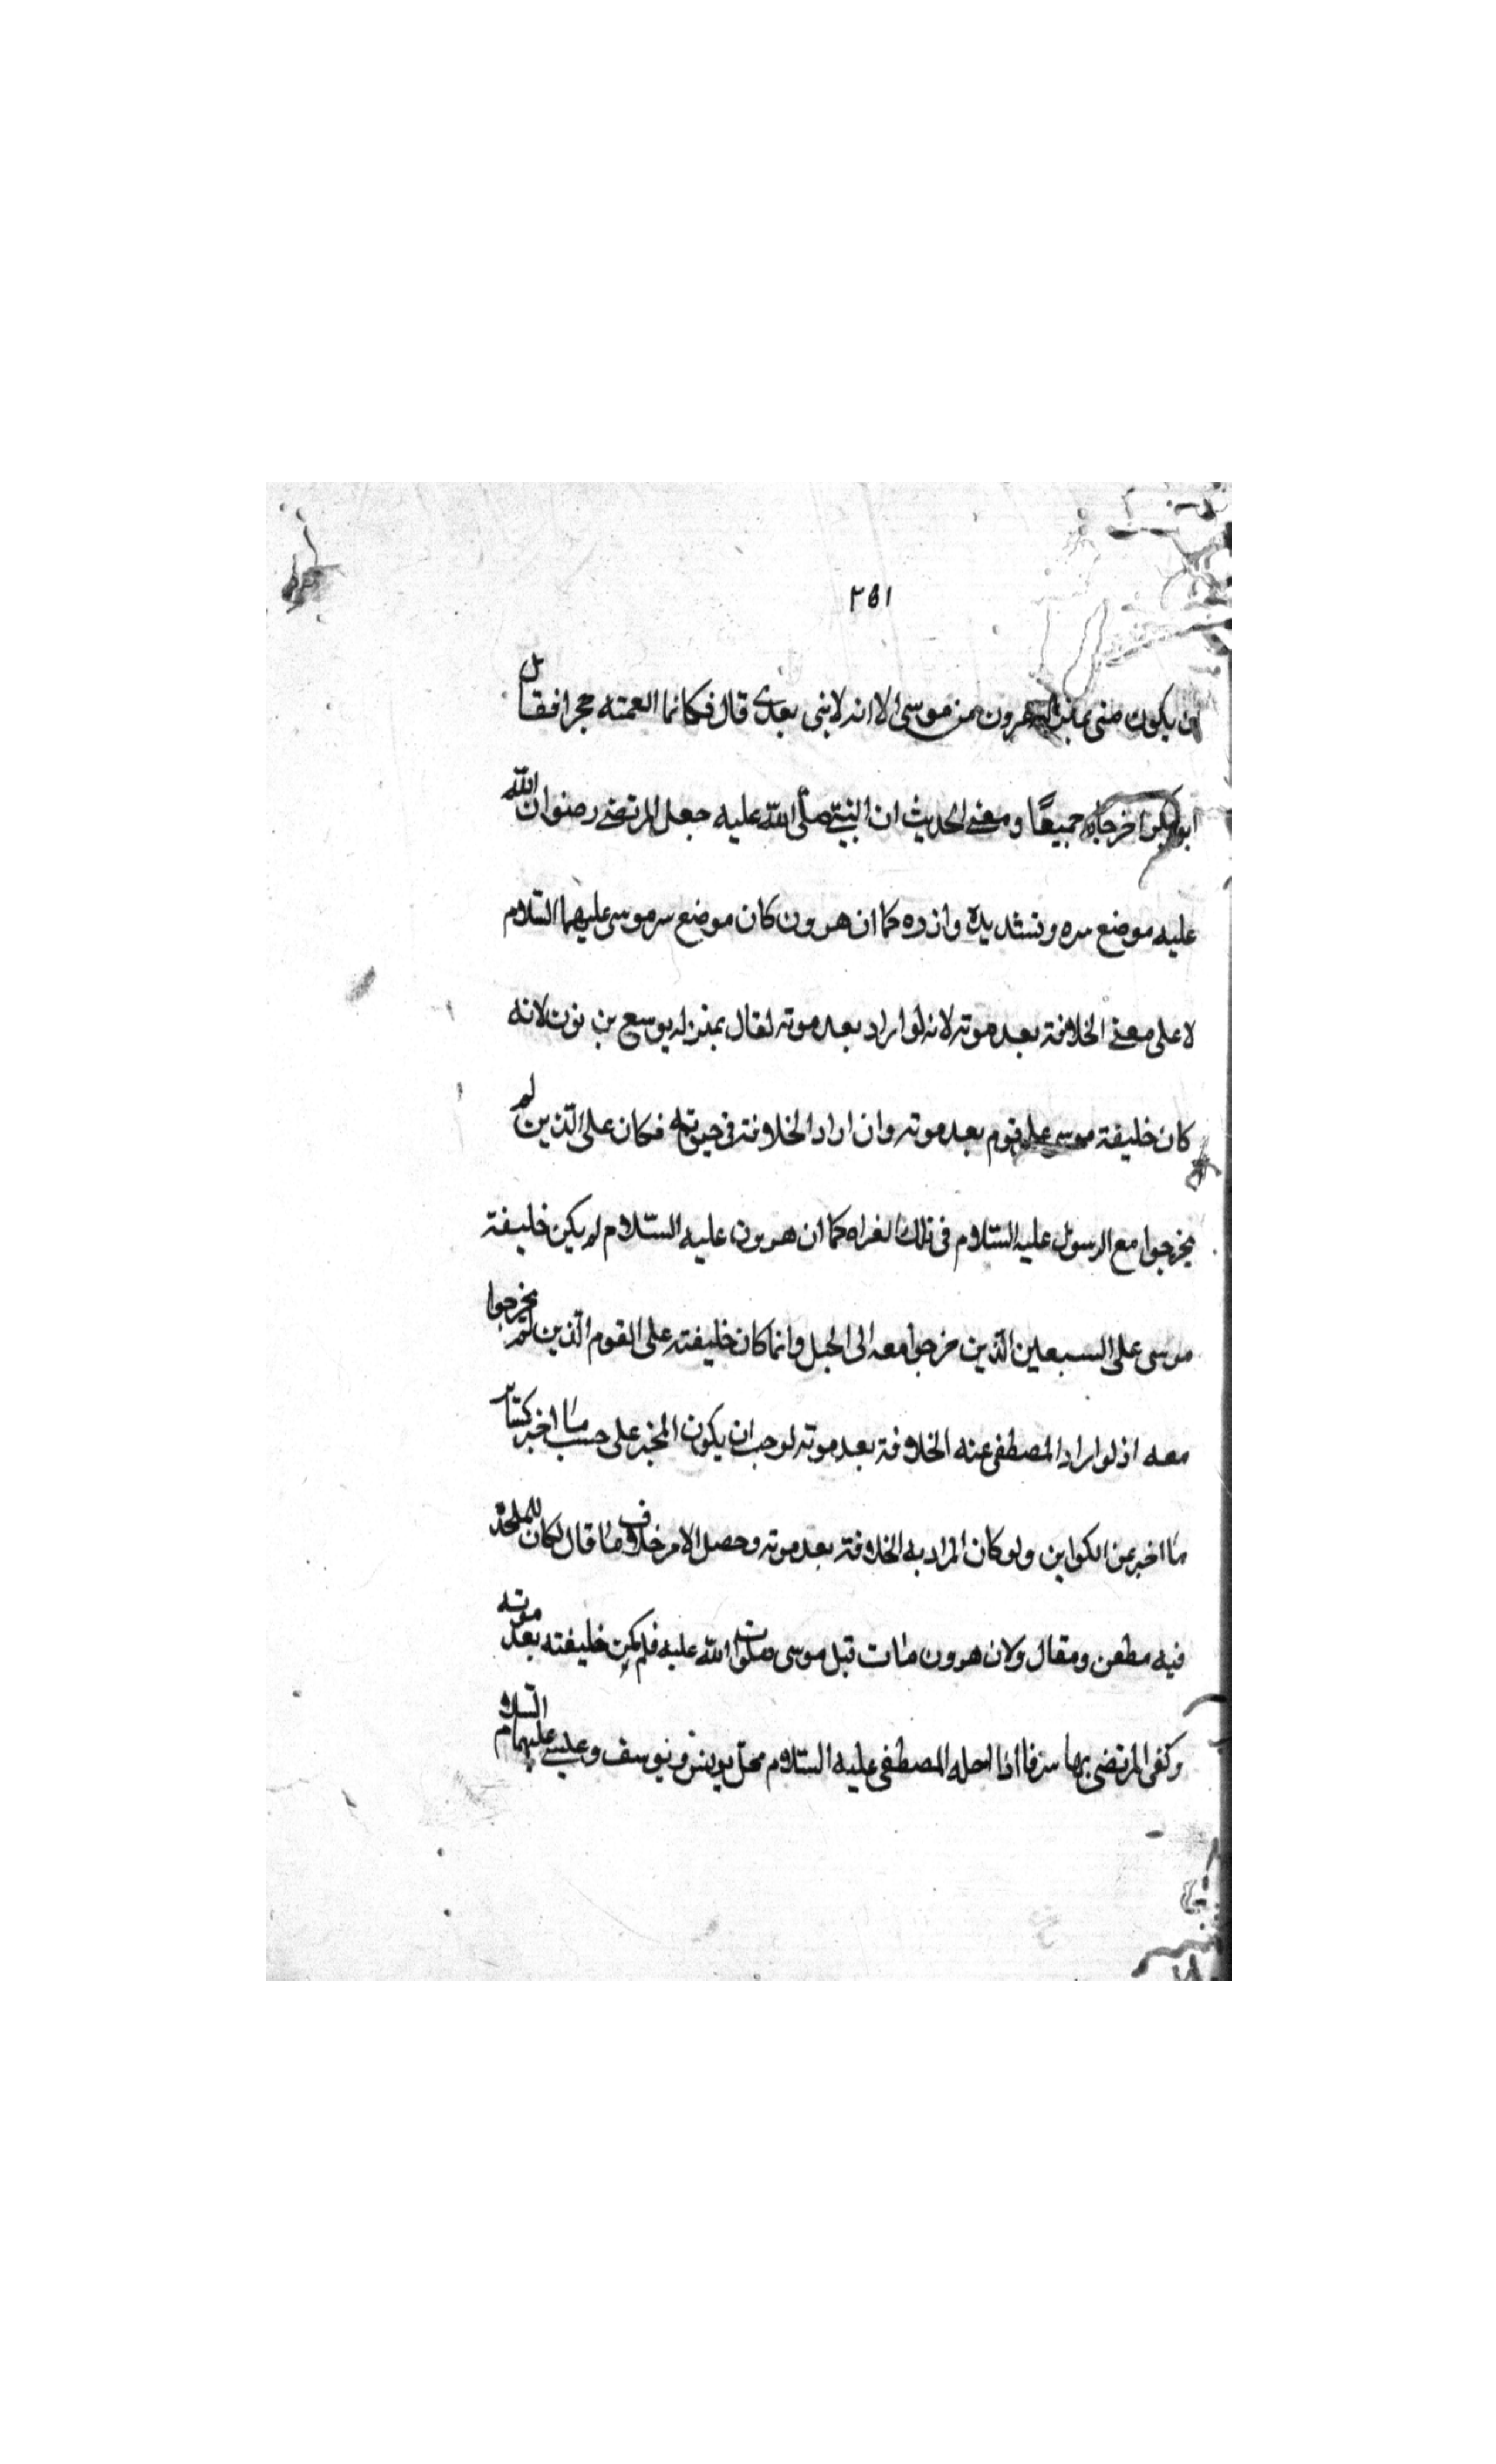 ٢٥١
ان يكون منى بمنزلة هرون من موسى الا انه لا نبى بعدى قال فكانما القمته حجرا فقال
ابو بكر اخرجاه جميعًا ومعنى الحديث ان النبىّ صلّى الله عليه جعل المرتضى رضوان الله
عليه موضع سره وتشديده وازره كما ان هرون كان موضع سر موسى عليهما السّلام
لا على معنى الخلافة بعد موته لانه لو اراد بعد موته لقال بمنزله يوسع بن نون لانه
كان خليفة موسى على قوم بعد موته وان اراد الخلافة فى حيوته فكان على الّذين لم
يخرجوا مع الرسول عليه السّلام فى تلك الغراه كما ان هرون عليه السّلام لم يكن خليفة
موسى على السبعين الّذين خرجوا معه الى الجبل وانما كان خليفته على القوم الّذين لم يخرجوا
معه اذ لو اراد المصطفى عنه الخلافة بعد موته لوجب ان يكون المخبر على حسب ما اخبر كسائر
ما اخبر من الكواين ولو كان المراد به الخلافة بعد موته وحصل الامر خلاف ما قال لكان للملحذ
فيه مطعن ومقال ولان هرون مات قبل موسى صلوات الله عليه فلم يكن خليفته بعد موته
وكفى المرتضى بها سرفا اذا احله المصطفى عليه السّلام محلّ يونس ويوسف وعيسى عليهما السّلام